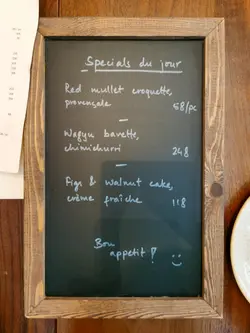 Specials du jour
Red mullet croquette,
provençale 58/pc
Wagyu bavette,
chimichurri 248
Figs & walnut cake,
crème fraîche 118
Bon
appetit!